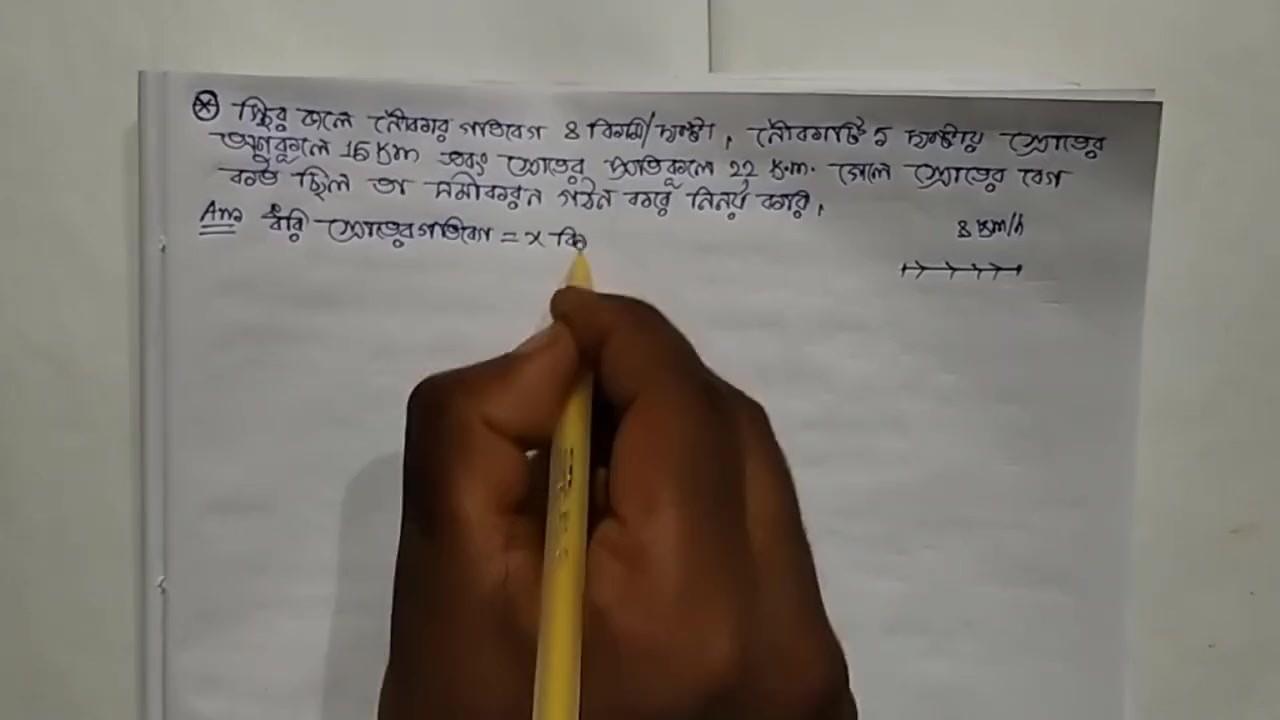 স্থির জলে নৌকার গতিবেগ 8 কিমি/ঘন্টা, নৌকাটি 5 ঘন্টায় স্রোতের
অনুকূলে 15 Km এবং স্রোতের প্রতিকূলে 22 K.m. গেলে স্রোতের বেগ
কত ছিল তা সমীকরন গঠন করে নির্নয় করি,
8 Km/h
Ans ধরি স্রোতের গতিবেগ = x কি